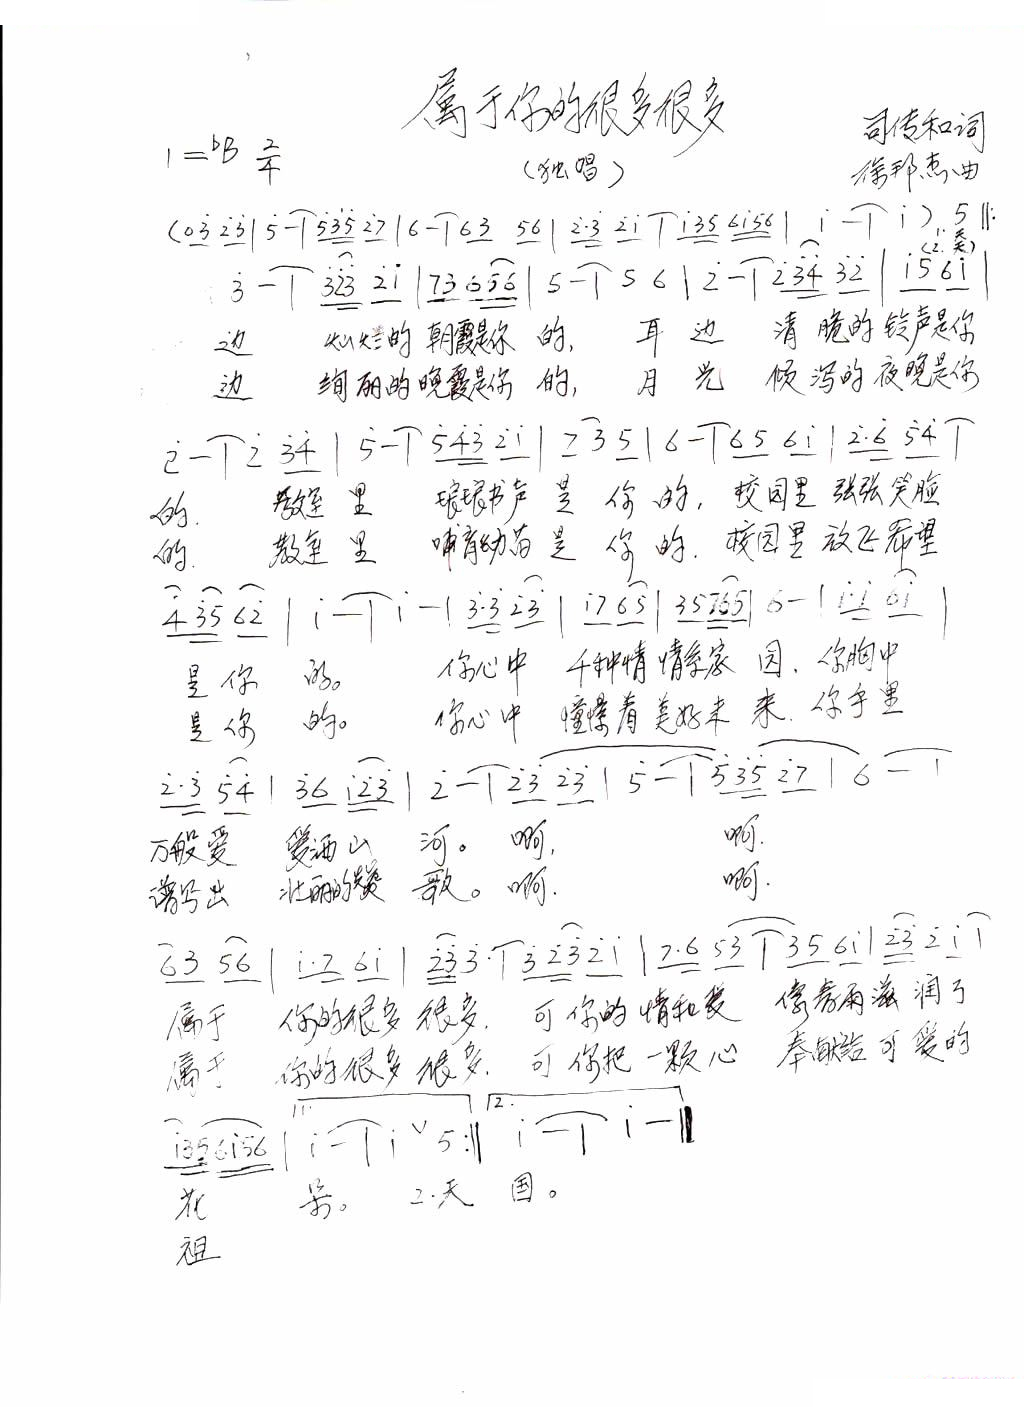 属于你的很多很多
司传和词
1=bB 2/4
(独唱)
徐邦杰曲
(03 23|5-|535 27|6-|63 56|2·3 21|135 6156|1-|1) 5||:
1.天
(2.天)
3-|323 21|73 656|5-|5 6|2-|234 32|15 61|
边 灿烂的朝霞是你的, 耳边 清脆的铃声是你
边 绚丽的晚霞是你的, 月光 倾泻的夜晚是你
2-|2 34|5-|543 21|2 35|6-|65 61|2·6 54|
的. 教室里 琅琅书声是你的, 校园里张张笑脸
的. 教室里 哺育幼苗是你的. 校园里放飞希望
435 62|1-|1-|3·3 23|17 65|35765|6-|1·1 61|
是你的。 你心中千种情情系家园. 你胸中
是你的。 你心中憧憬着美好未来. 你手里
2·3 54|36 123|2-|23 23|5-|535 27|6-|
万般爱 爱洒山河。啊, 啊.
谱写出 壮丽的赞歌。啊. 啊.
63 56|1·7 61|233·|3 23 21|7·6 53|35 61|23 21|
属于 你的很多很多. 可你的情和爱 像春雨滋润了
属于 你的很多很多. 可你把一颗心 奉献给可爱的
1. 2.
135 6156|1-|1 ∨ 5:||1-|1-||
花 朵。 2.天 国。
祖